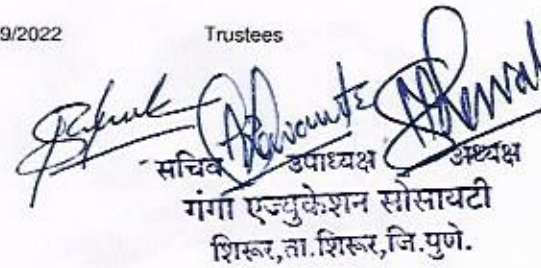 9/2022 Trustees
सचिव उपाध्यक्ष अध्यक्ष
गंगा एज्युकेशन सोसायटी
शिरूर,ता.शिरूर,जि.पुणे.